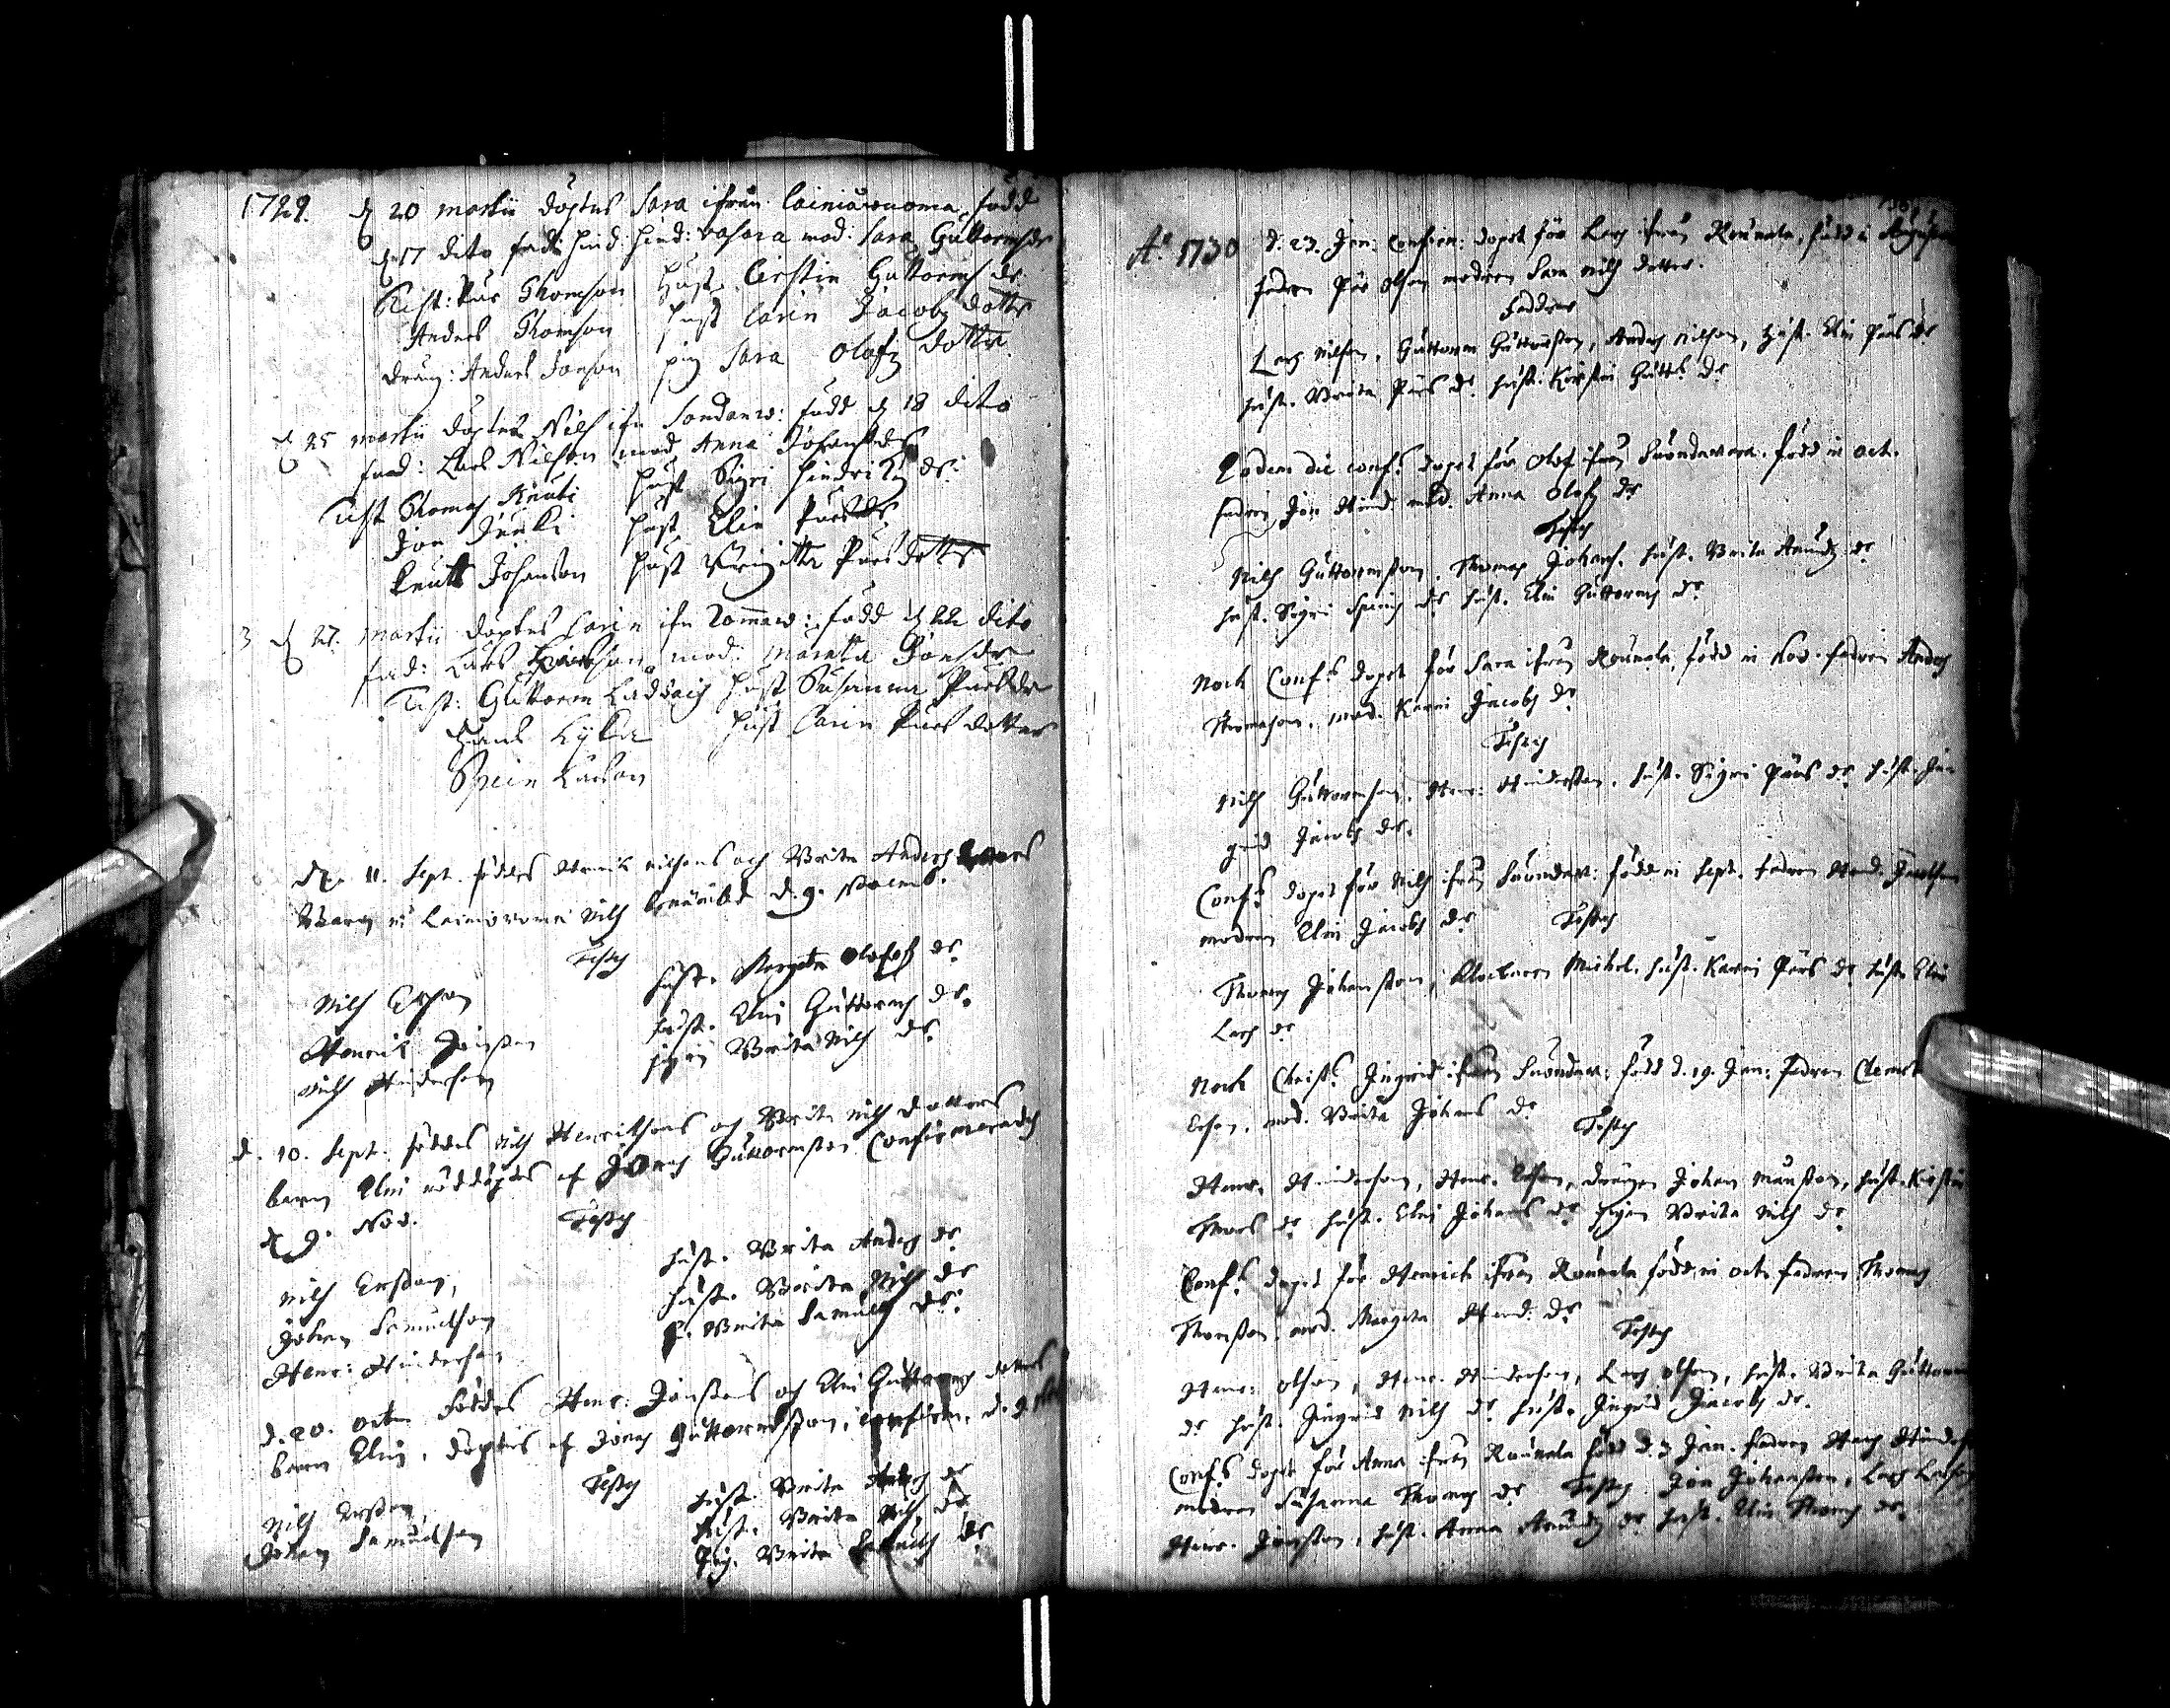 1729. d 20 martii döptes Sara ifrån Lainiovuoma, född
d 17 dito fad: Hind: Hind: Vasara mod: Sara Guttormsdr
Test: Pär Thomson Hust. Cirstin Guttorms dr
Anders Thomson hust Carin Jacobs dotter
dräng: Anders Jonson pig Sara Olofz dotter
d 25 martii döptes Nils ifn Sondavar: född d 18 dito
fad: Lars Nilsson mod Anna Johansdr
Test Thomas Knuti hust Sigri Hindrikz dr
Jon hust Elin Pärsdr
Knutt Johanson hust Brigitta Pärsdotter
3 d 27. martii döptes Carin ifn född d 22 dito
fad: Lars mod: Marita Jonsdr
Test: Guttorm hust Susanna Pärsdr
hust Carin Pärsdotter
Spein Larson
d. 11. Sept. föddes Henrik Nilsons och Brita Anders dotters
Barn i Lainiovuoma Nils d. 9. Novemb.
Testes
Nils Erson hust. Margeta Olofs dr
Henrik Jönsson hust. Elin Guttorms dr.
Nils Hindersson pigan Brita Nils dr
d. 10. Sept. föddes Nils Henriksons och Brita Nils dotters
barn Elin nöddöptes af Jonas Guttormsson Confirmerades
d 9. Nov. Testes
Nils Ersson, hust. Brita Anders dr
Johan Samuelson hust. Brita Nils dr
Henr: Hinderson P. Brita Samuels dr.
d. 20. octo föddes Henr: Jönssons och Elin Guttorms dotters
barn Elin, döptes af Jonas Guttormsson, confirm. d. 9
Testes
Nils Ersson, hust. Brita Anders dr
Johan Samuelson hust. Brita Nils dr
Pig. Brita Samuels dr
Ao 1730 d. 23. Jan: Confirm: dopet för Lars ifrån Rounala, född i Augusti
fadren Pär Olson modren Sara Nils dotter.
Faddrar
Lars Nilson, Guttorm Guttormson, Anders Nilson, Hust. Elin Pärs dr
hust. Brita Pärs dr hust. Kirstin Gutt: dr
Eodem die conf: dopet för Olof ifrån Suondavara. född in Oct.
fadren Jon Hind mod. Anna Olofz dr
Testes
Nils Guttormsson. Thomas Johans. hust. Brita Amundz dr
hust. Sigri Speins dr hust. Elin Guttorms dr
Noch Conf: dopet för Sara ifrån Rounala, född in Nov. fadren Anders
Thomason. mod. Karin Jacobs dr
Testes
Nils Guttormson. Henr: Hinderson. hust. Sigri Pärs dr hust. In-
grid Jacobs dr.
Conf: dopet för Nils ifrån Suondav: född in Sept. fadren Hend. Jacobson
modren Elin Jacobs dr Testes
Thomas Johansson, Klockaren Michel. hust. Karin Pärs dr hust Elin
Lars dr
Noch Christ: Ingrid ifrån Suondav: född d. 19. Jan: fadren Clemet
Erson. mod. Brita Johans dr Testes
Henr. Hinderson, Henr. Erson, drängen Johan Månsson, hust. Kirstin
Thomas dr hust. Elin Johans dr pigan Brita Nils dr
Conf: dopet för Henrich ifrån Rounala född in Oct. fadren Thomas
Thomsson, mod. Margeta Hend: dr Testes
Henr: Olson, Henr. Hinderson, Lars Olson, hust. Brita Guttorm
dr hust. Ingrid Nils dr hust. Ingrid Jacobs dr.
Conf: dopet för Anna ifrån Rounala född d. 3 Jan. fadren Hans
modren Susanna Thomas dr Testes Jon Johansson, Lars Larson
Henr. Jönsson, hust. Anna Amundz dr hust. Elin Thomas dr.